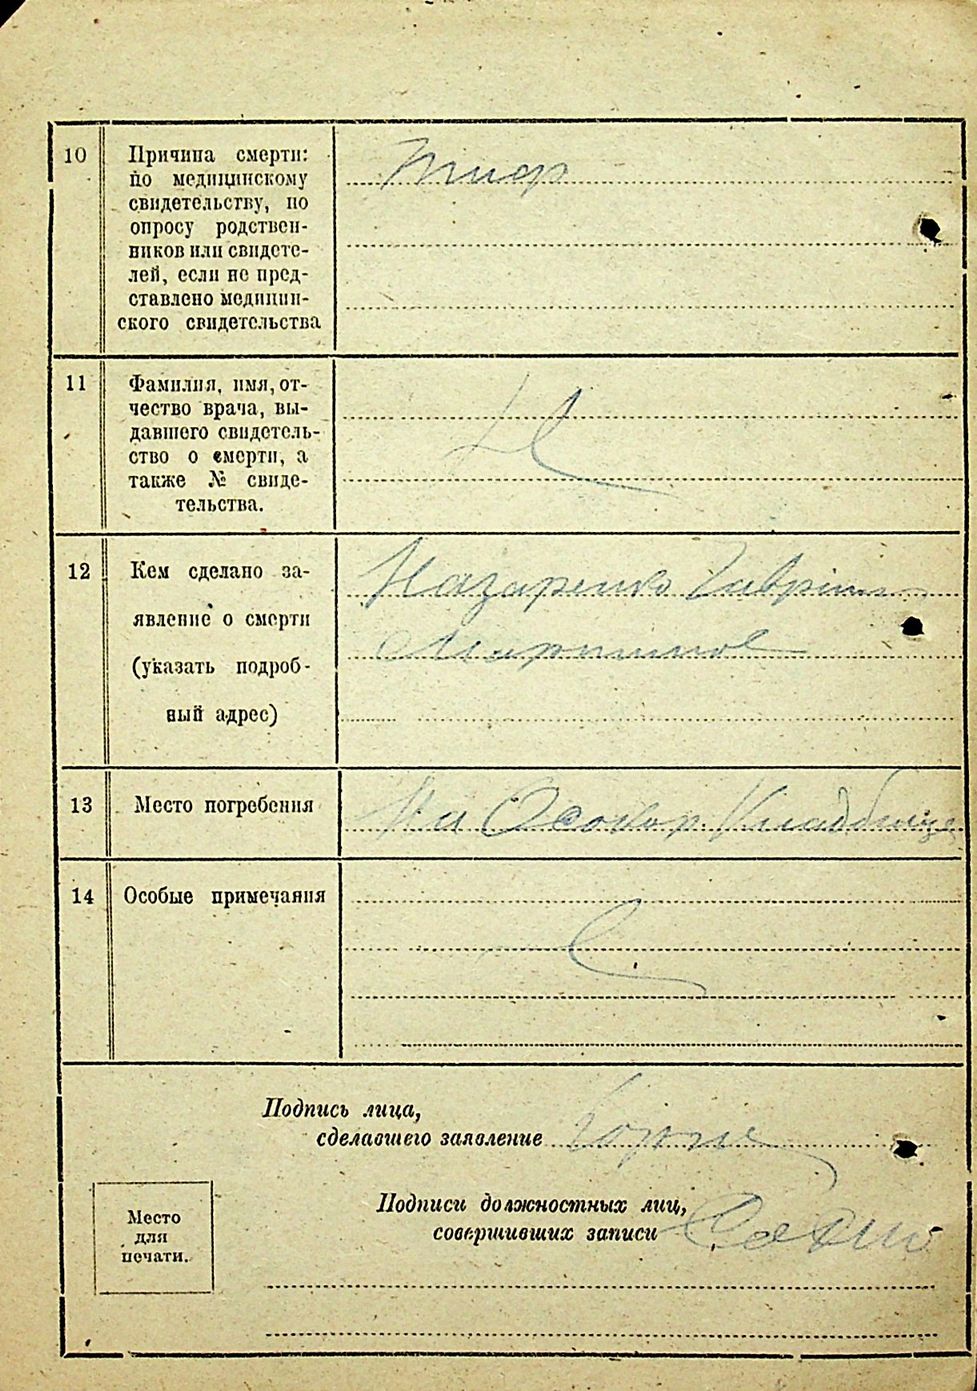 10
Причина смерти:
по медицинскому
свидетельству, по
опросу родствен-
ников или свидете-
лей, если не пред-
ставлено медицин-
ского свидетельства
Тиф
11
Фамилия, имя, от-
чество врача, вы-
давшего свидетель-
ство о смерти, а
также № свиде-
тельства.
12
Кем сделано за-
явление о смерти
(указать подроб-
ный адрес)
Назаренко
13
Место погребения
На Осокор. Кладбище
14
Особые примечания
Подпись лица,
сделавшего заявление
Подписи должностных лиц,
совершивших записи
Место
для
печати.